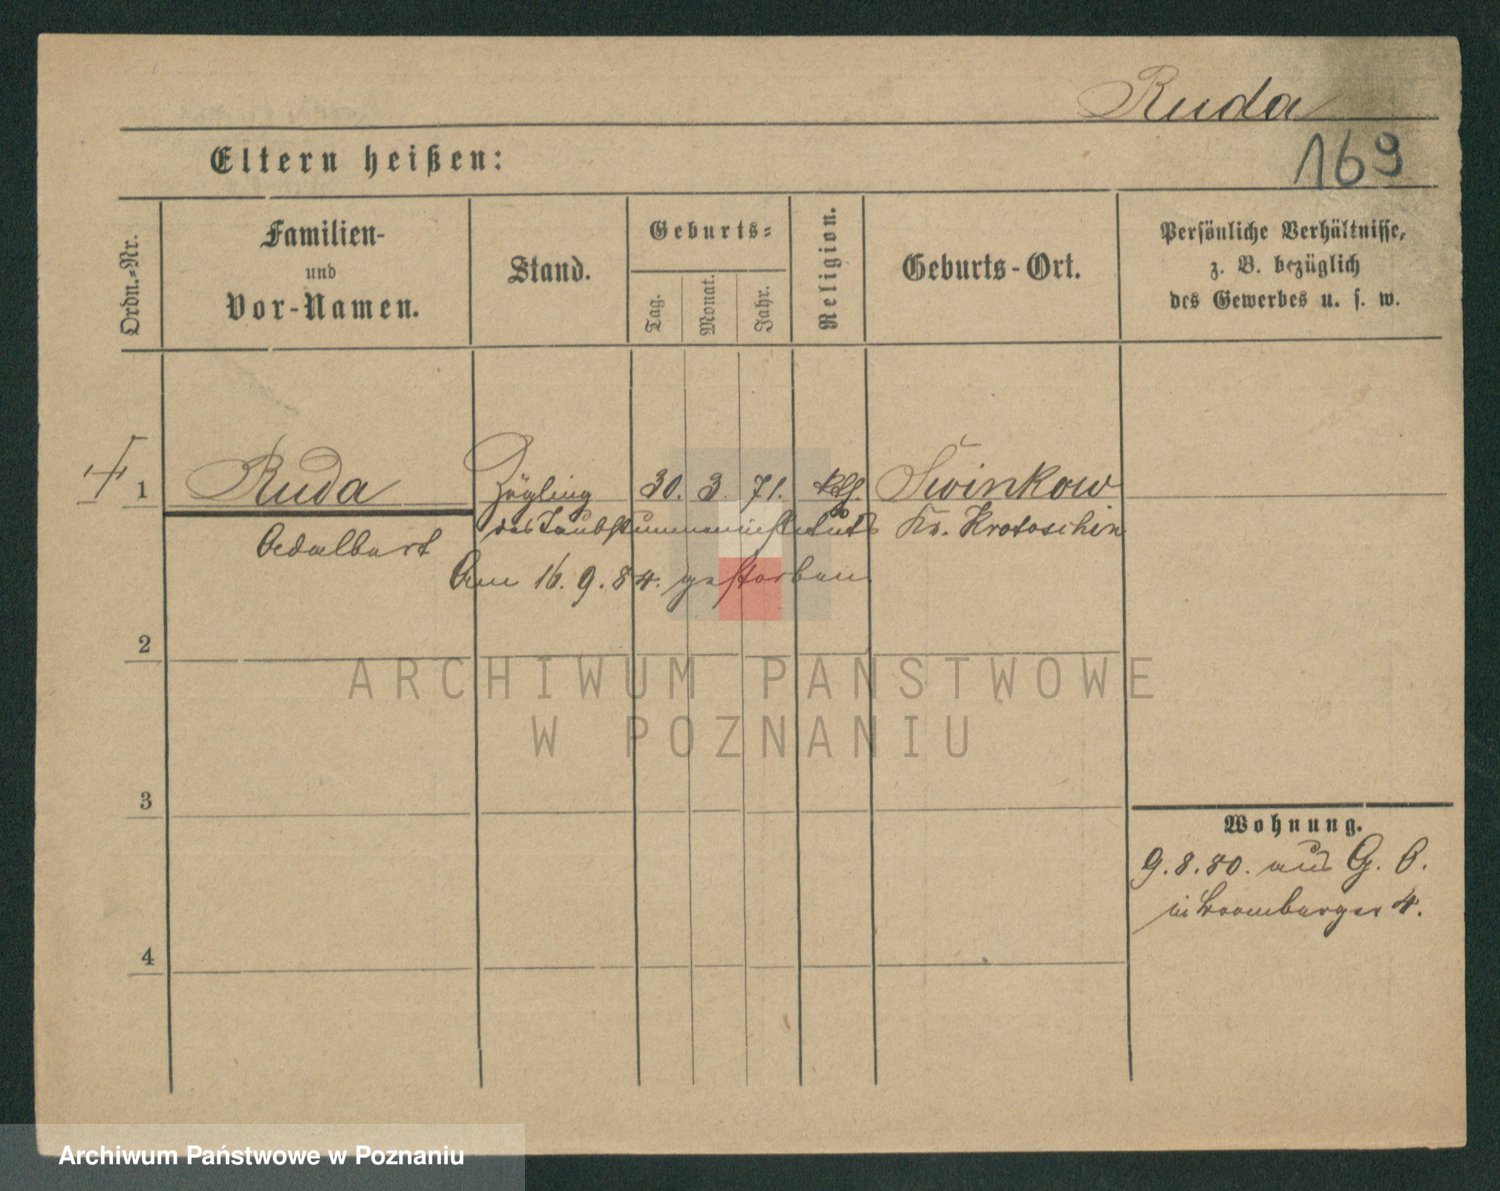 Ruda
169
Eltern heißen:
Ordn.-Nr.
Familien-
und
Vor-Namen.
Stand.
Geburts-
Tag.
Monat.
Jahr.
Religion.
Geburts-Ort.
Persönliche Verhältnisse,
z. B. bezüglich
des Gewerbes u. s. w.
1 Ruda Zögling 30. 3. 71. kth. Swinkow
Adalbert des Taubstummeninstituts Kr. Krotoschin
Am 16. 9. 84. gestorben
2
ARCHIWUM PAŃSTWOWE
W POZNANIU
3
Wohnung.
9. 8. 80. aus G. O.
in Bromberger 4.
4
Archiwum Państwowe w Poznaniu